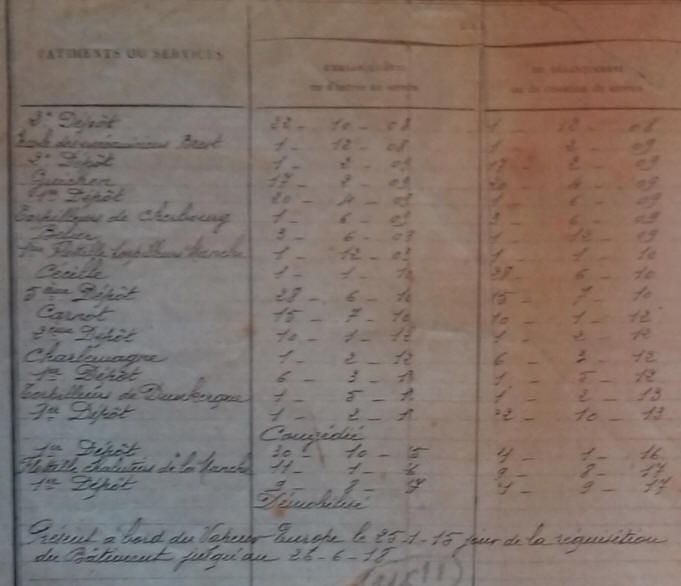 BATIMENTS OU SERVICES
3e Dépôt 22 - 10 - 08 1 - 12 - 08
Ecole des mécaniciens Brest 1 - 12 - 08 1 - 2 - 09
3e Dépôt 1 - 2 - 09 17 - 2 - 09
Guichen 17 - 2 - 09 20 - 4 - 09
1er Dépôt 20 - 4 - 09 1 - 6 - 09
Torpilleurs de Cherbourg 1 - 6 - 09 3 - 6 - 09
Belier 3 - 6 - 09 1 - 12 - 09
1ère Flottille Torpilleurs Manche 1 - 12 - 09 1 - 1 - 10
Cécille 1 - 1 - 10 28 - 6 - 10
5ème Dépôt 28 - 6 - 10 15 - 7 - 10
Carnot 15 - 7 - 10 10 - 1 - 12
2ème Dépôt 10 - 1 - 12 1 - 2 - 12
Charlemagne 1 - 2 - 12 6 - 3 - 12
1er Dépôt 6 - 3 - 12 1 - 5 - 12
Torpilleurs de Dunkerque 1 - 5 - 12 1 - 2 - 13
1er Dépôt 1 - 2 - 13 22 - 10 - 13
Congédié
1er Dépôt 30 - 10 - 15 4 - 1 - 16
Flottille chalutiers de la Manche 11 - 1 - 16 9 - 8 - 17
1er Dépôt 9 - 8 - 17 4 - 9 - 17
Démobilisé
Présent à bord du Vapeur Europe le 25-1-15 jour de la réquisition
du Bâtiment jusqu'au 26-6-18